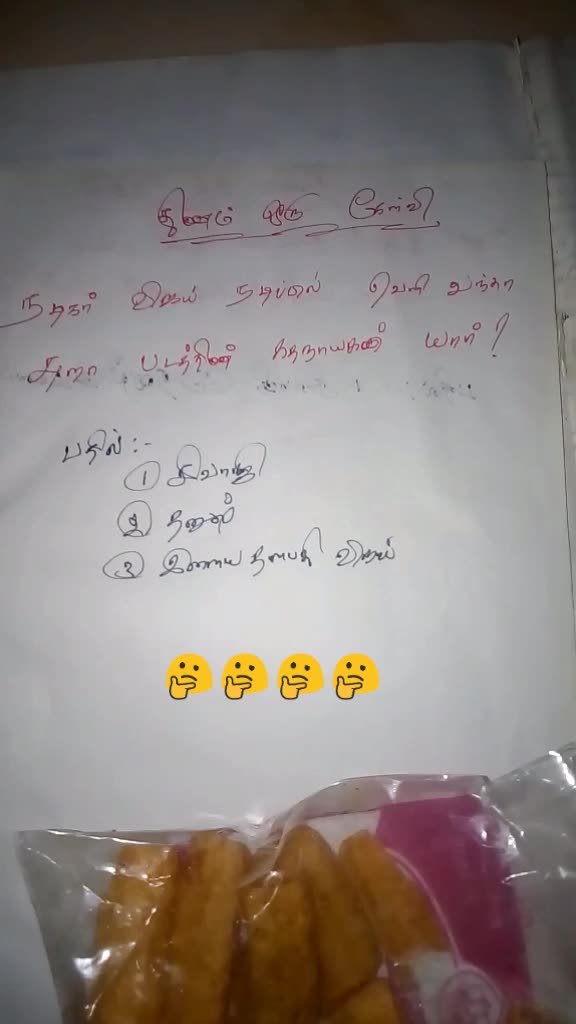 தினம் ஒரு கேள்வி
நடிகர் விஜய் நடிப்பில் வெளி வந்த
சுறா படத்தின் கதநாயகன் யார்?
பதில் :-
① சிவாஜி
② தனுஷ்
③ இளைய தளபதி விஜய்